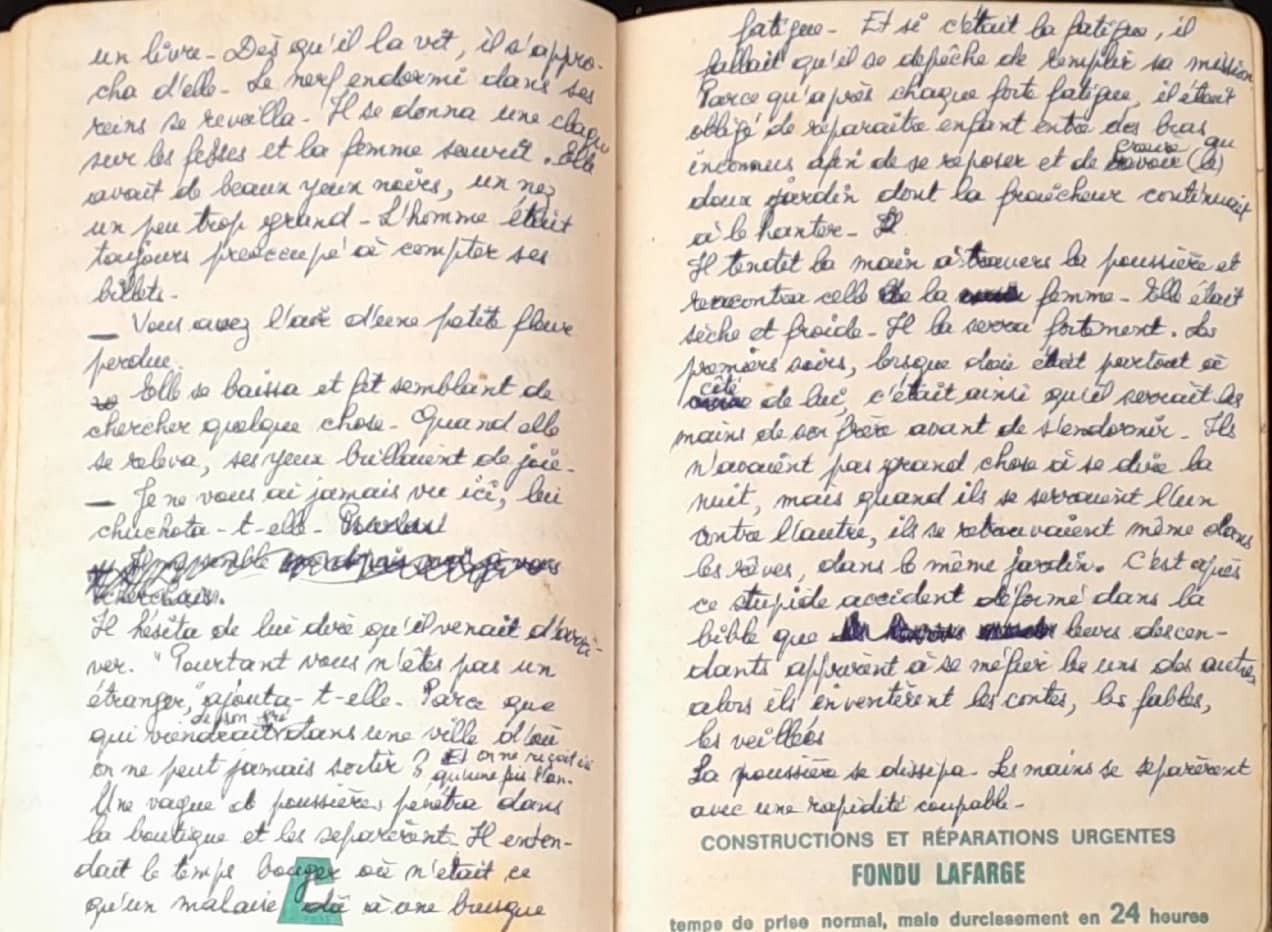 un livre - Dès qu'il la vit, il s'appro-
cha d'elle - Le nerf endormi dans ses
reins se reveilla - Il se donna une claque
sur les fesses et la femme sourit. Elle
avait de beaux yeux noirs, un nez
un peu trop grand - L'homme était
toujours préoccupé à compter ses
billets -
— Vous avez l'air d'une petite fleur
perdue.
Elle se baissa et fit semblant de
chercher quelque chose - Quand elle
se releva, ses yeux brillaient de joie -
— Je ne vous ai jamais vu ici, lui
chuchota-t-elle -
Il me semble vous
cherchais.
Il hésita de lui dire qu'il venait d'arri-
ver. "Pourtant vous n'êtes pas un
étranger," ajouta-t-elle - Parce que
de son gré
qui viendrait dans une ville d'où
on ne peut jamais sortir ? Et on ne reçoit ici
qu'une fois l'an.
Une vague de poussières pénétra dans
la boutique et les separèrent - Il enten-
dait le temps bouger où n'était ce
qu'un malaise dû à une brusque
C
fatigue - Et si c'était la fatigue, il
fallait qu'il se dépêche de remplir sa mission
Parce qu'après chaque forte fatigue, il était
obligé de réparaître enfant entre des bras
inconnus afin de se reposer et de (le)
doux jardin dont la fraîcheur continuait
à le hanter -
Il tendit la main à travers la poussière et
rencontra celle de la femme - Elle était
sèche et froide - Il la serra fortement. Les
premiers soirs, lorsque était partout à
côté
de lui, c'était ainsi qu'il serrait les
mains de son frère avant de s'endormir - Ils
n'avaient pas grand chose à se dire la
nuit, mais quand ils se serraient l'un
contre l'autre, ils se retrouvaient même dans
les rêves, dans le même jardin. C'est après
ce stupide accident déformé dans la
bible que leurs descen-
dants apprirent à se méfier les uns des autres
alors ils inventèrent les contes, les fables,
les veillées
La poussière se dissipa - Les mains se séparèrent
avec une rapidité coupable -
CONSTRUCTIONS ET RÉPARATIONS URGENTES
FONDU LAFARGE
temps de prise normal, mais durcissement en 24 heures